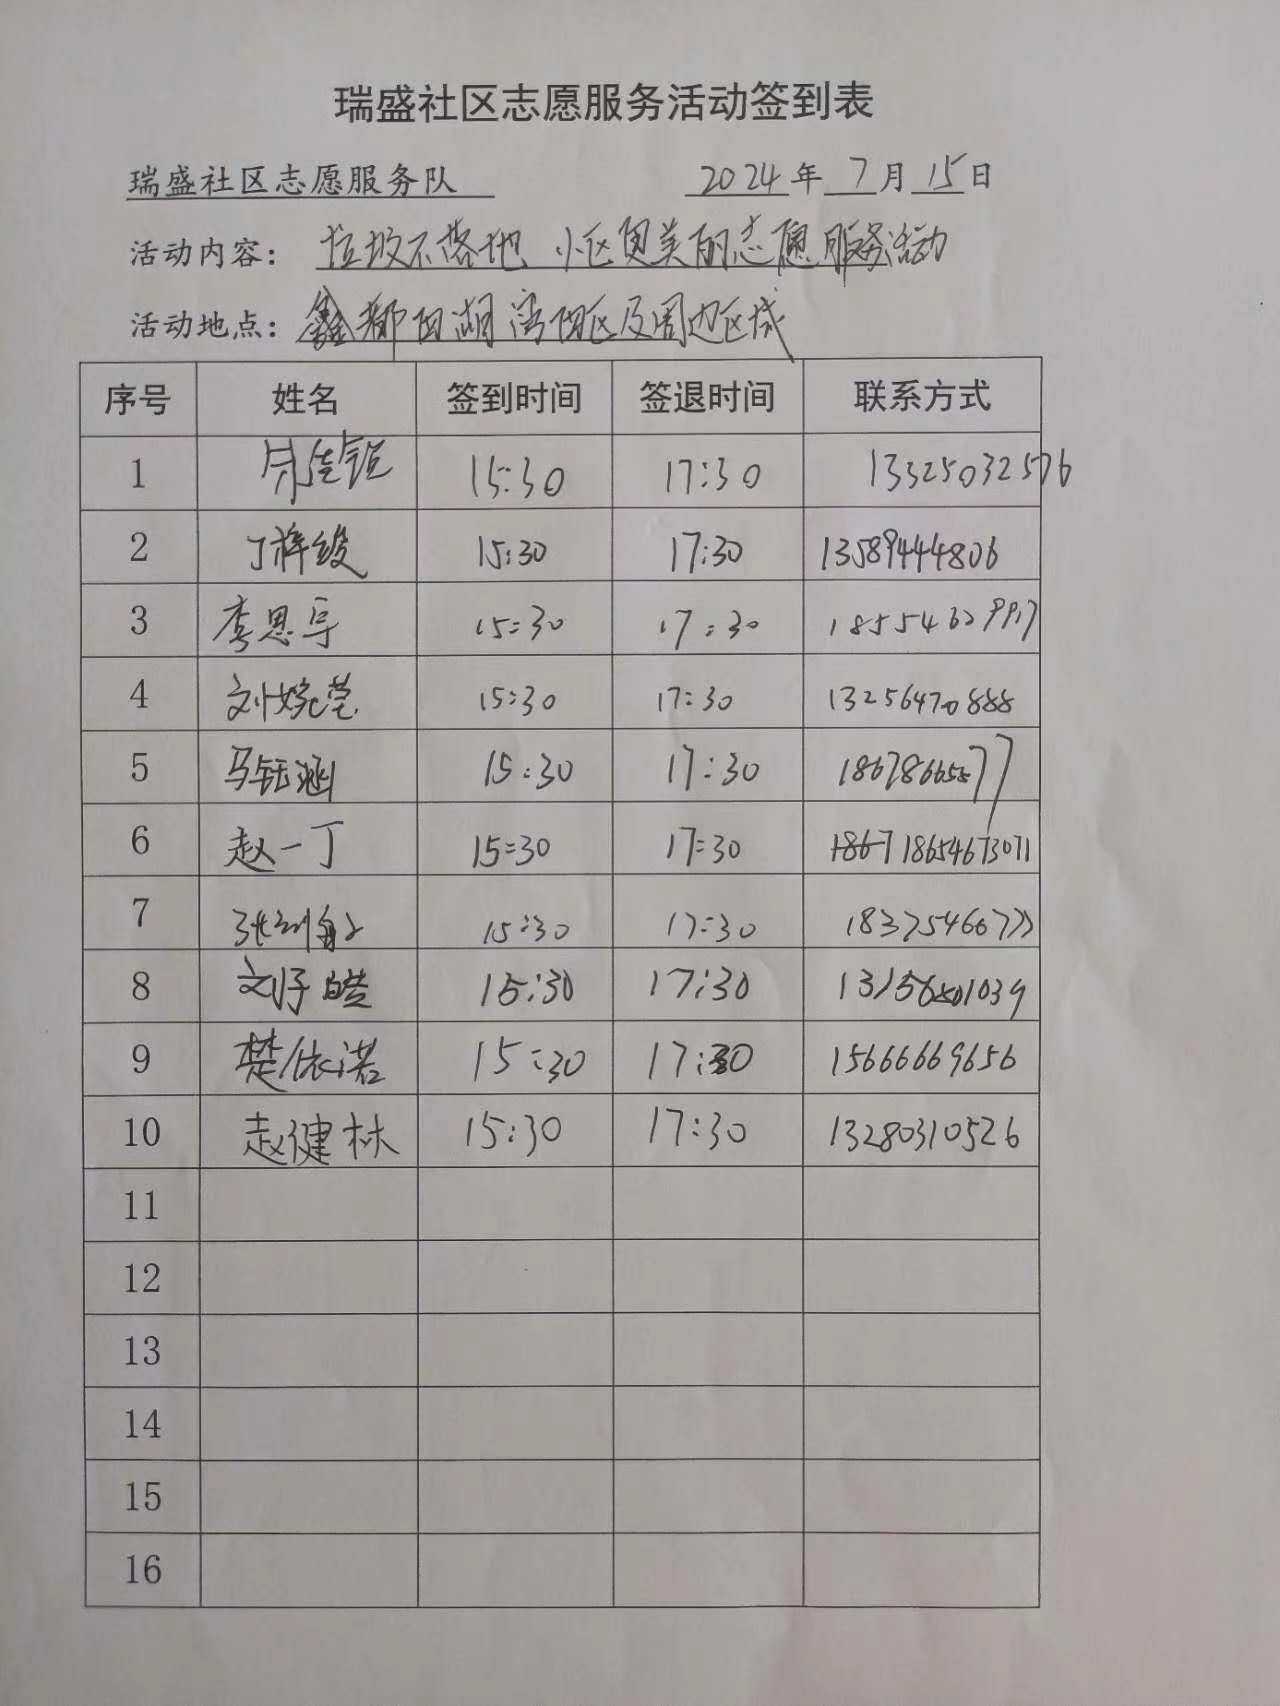 瑞盛社区志愿服务活动签到表
瑞盛社区志愿服务队 2024年7月15日
活动内容：垃圾不落地 小区更美丽志愿服务活动
活动地点：鑫都阳湖湾阳区及周边区域
序号 姓名 签到时间 签退时间 联系方式
1 15:30 17:30 13325032576
2 丁梓绫 15:30 17:30 13589444806
3 李恩 15:30 17:30
4 刘婉莹 15:30 17:30 13256470888
5 马钰涵 15:30 17:30
6 赵一丁 15:30 17:30 18654673071
7 张 15:30 17:30
8 刘子皓 15:30 17:30
9 楚依诺 15:30 17:30 15666669656
10 赵健林 15:30 17:30 13280310526
11
12
13
14
15
16